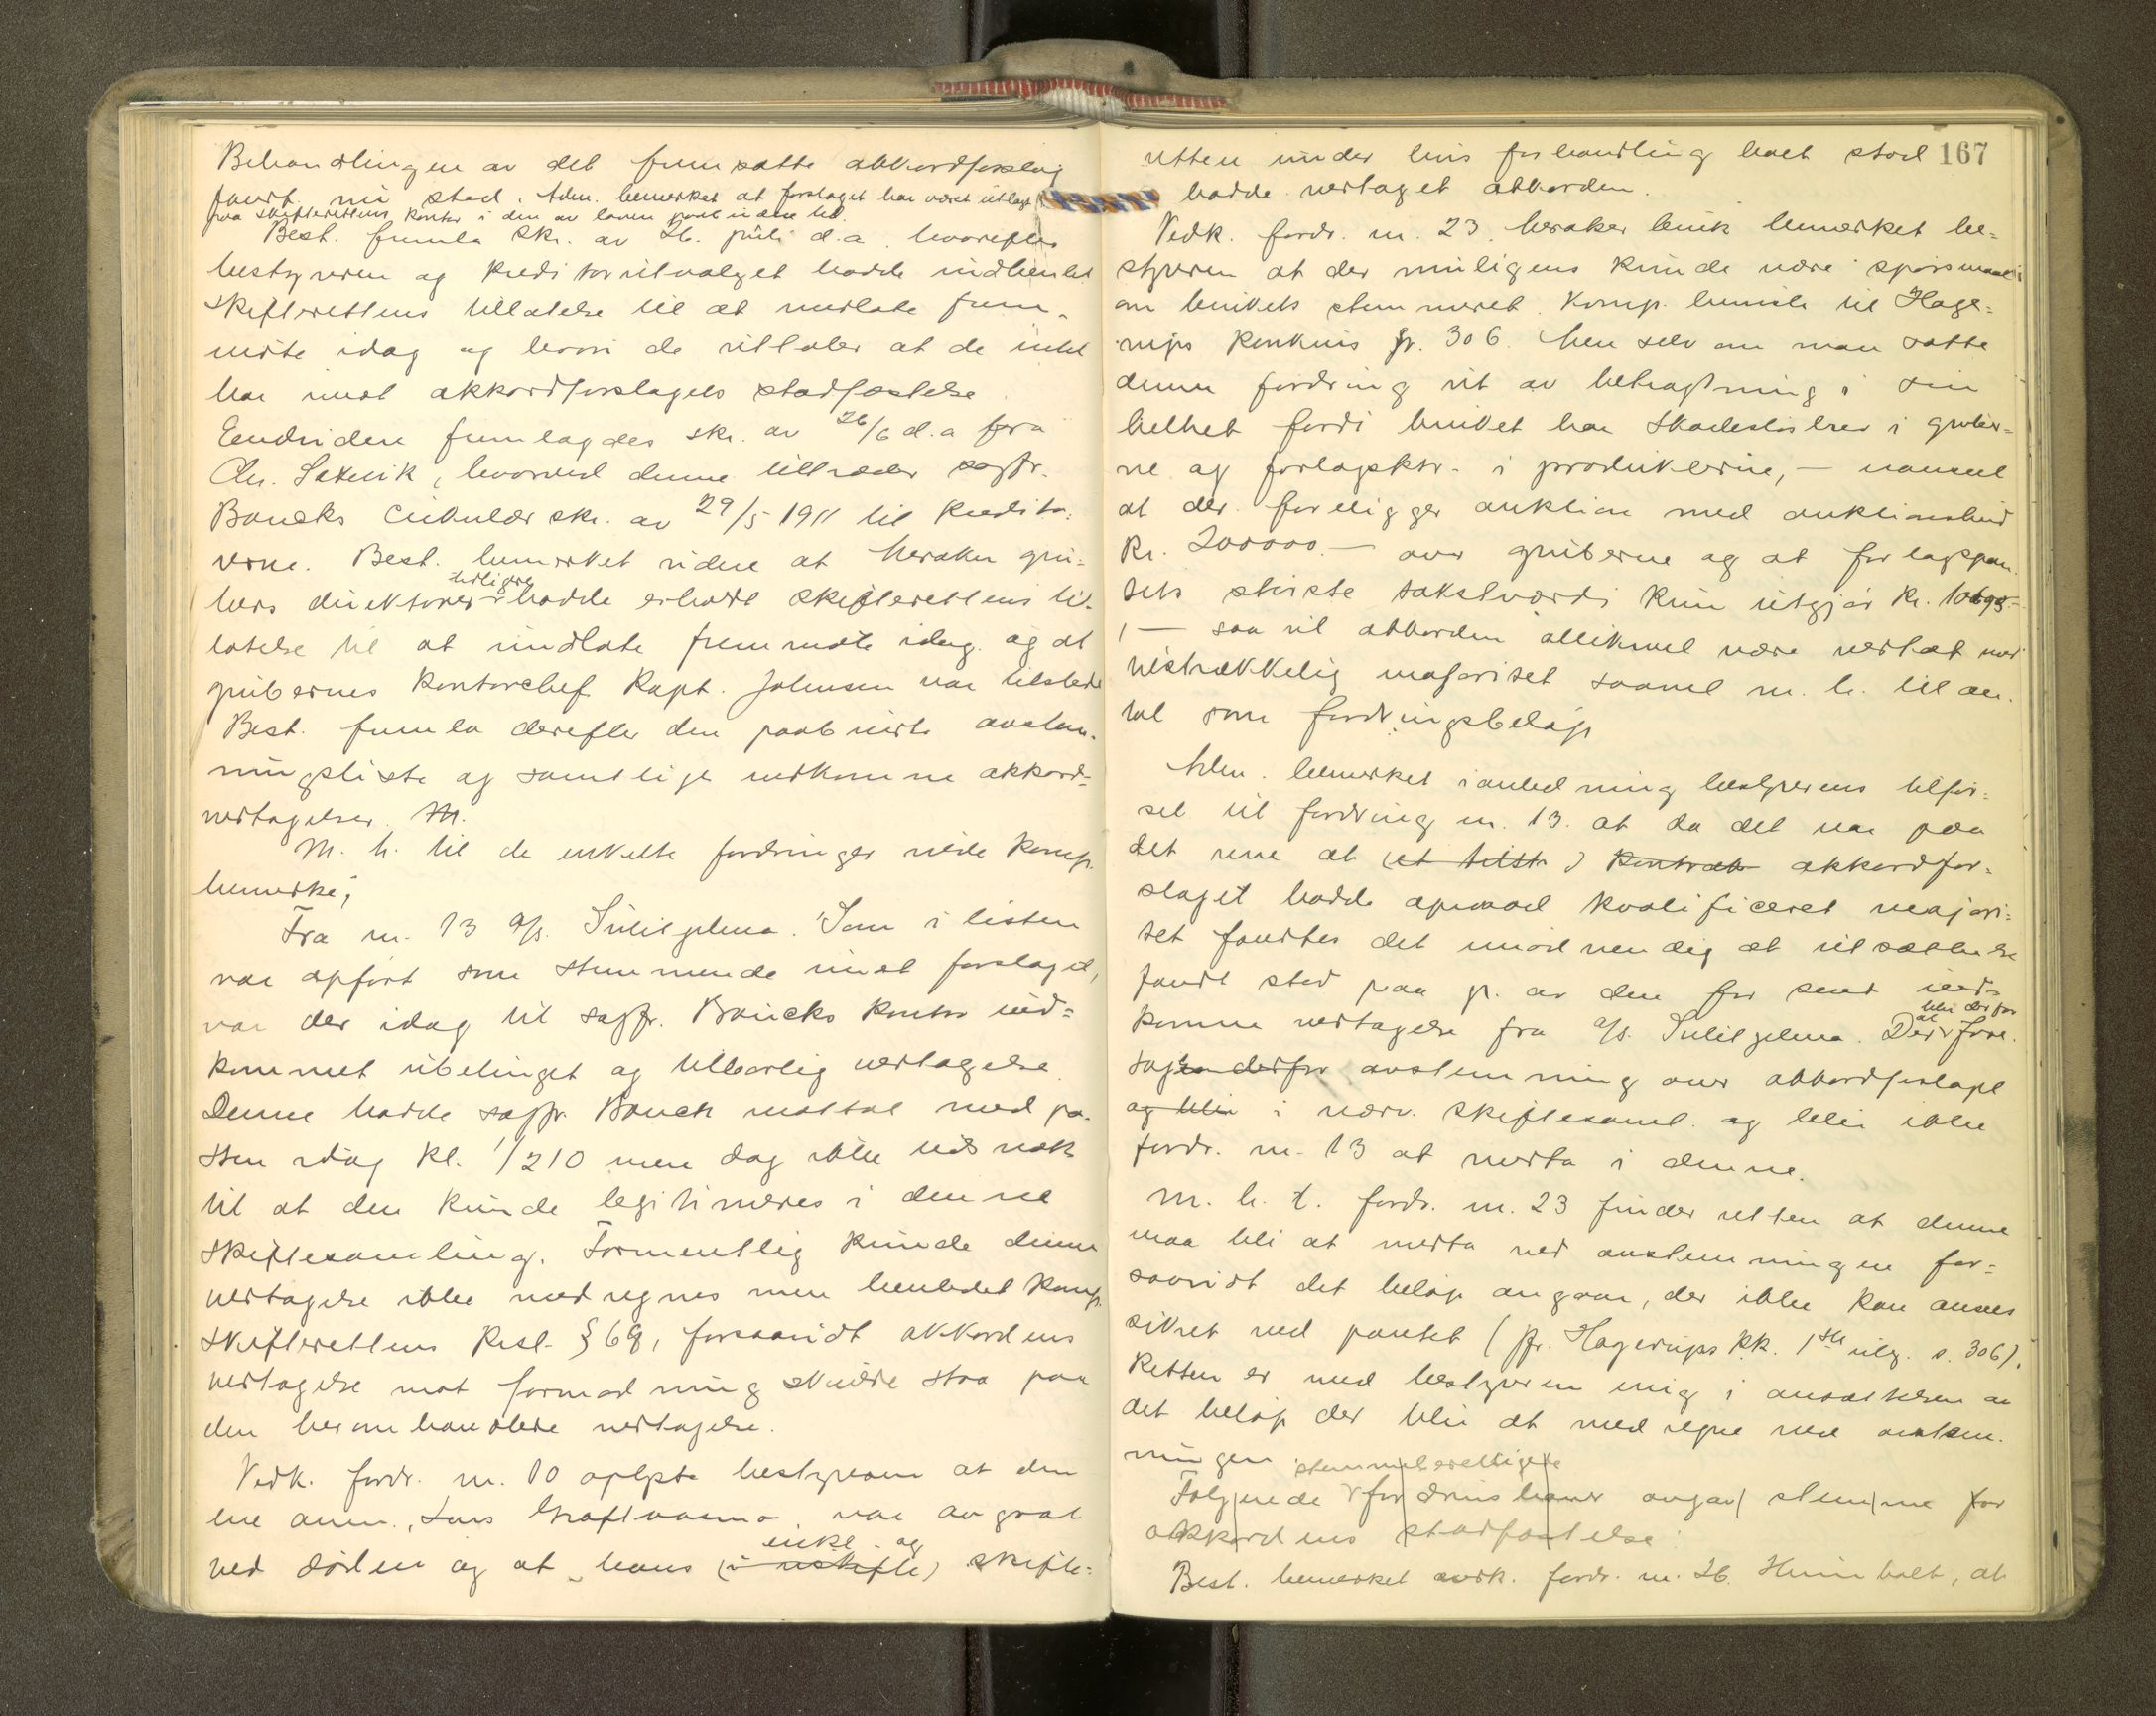 Behandlingen av det fremsatte akkordforslag
fandt nu sted. Adm. bemerket at forslaget har været utlagt
paa skifterettens kontor i den av loven paabudne tid.
Best. fremla skr. av 26. juli d.a. hvorefter
bestyreren og kreditorutvalget hadde indhentet
skifterettens tillatelse til at undlate frem-
møte idag og hvori de uttaler at de intet
har imot akkordforslagets stadfæstelse
Endvidere fremlagdes skr. av 26/6 d.a fra
Chr. , hvorved denne tiltræder sagfr.
Boucks cirkulærskr. av 29/5 1911 til kredito-
rerne. Best. bemerket videre at Meraker gru-
bers direktører tidligere hadde erholdt skifterettens til-
latelse til at undlate fremmøte idag og at
grubernes kontorchef Kapt. Johnsen var tilstede
Best. fremla derefter den paabudte avstem-
ningsliste og samtlige indkomne akkord-
vedtagelser. M.
M. h. til de enkelte fordringer vilde komp.
bemerke;
Fra nr. 13 A/s. Sulitjelma. Som i listen
var opført som stemmende imot forslaget,
var der idag til sagfr. Boucks kontor ind-
kommet ubetinget og tilbørlig vedtagelse.
Denne hadde sagfr. Bouck mottat med po-
sten idag kl. 1/2 10 men dog ikke tids nok
til at den kunde legitimeres i denne
skiftesamling. Formentlig kunde denne
vedtagelse ikke medregnes men henledet komp.
skifterettens Kksl. § 69, forsaavidt akkordens
vedtagelse mot formodning skulde staa paa
den her omhandlede vedtagelse.
Vedk. fordr. nr. 10 oplyste bestyreren at den
ene anm., Lars Graftaamo, var avgaat
ved døden og at hans (i uskifte) enke og skifte-
167
retten under hvis forhandling boet stod
hadde vedtaget akkorden.
Vedk. fordr. nr. 23. Meraker bruk bemerket be-
styreren at der muligens kunde være spørsmaal
om brukets stemmeret. Komp. henviste til Hage-
rups Konkurs jfr. 306. Men selv om man satte
denne fordring ut av betragtning i sin
helhet fordi bruket har skadesløsbrev i gruber-
ne og forlagsktr. i produkterne, – uanset
at der foreligger auktion med auktionsbud
Kr. 200000.– over gruberne og at forlagspan-
tets største takstværdi kun utgjør kr. 10695–
, – saa vil akkorden allikevel være vedtat med
tilstrækkelig majoritet saavel m. h. til an-
tal som fordringsbeløp
Adm. bemerket i anledning bestyrerens tilfør-
sel til fordring nr. 13. at da det var paa
det rene at (et tilstr.) kontrakt akkordfor-
slaget hadde opnaad kvalificeret majori-
tet fandtes det unødvendig at utsættelse
fandt sted paa gr. av den for sent ind-
komne vedtagelse fra A/s. Sulitjelma. Der blir derfor at fore-
tages derfor avstemning over akkordforslaget
og blir i nærv. skiftesaml. og blir ikke
fordr. nr. 13 at medta i denne.
M. h. t. fordr. nr. 23 finder retten at denne
maa bli at medta ved avstemningen for-
saavidt det beløp angaar, der ikke kan ansees
sikret ved pantet (jfr. Hagerups Kk. 1ste utg. s. 306).
Retten er med bestyreren enig i ansættelsen av
det beløp der blir at medregne ved avstem-
ningen
Følgende stemmeberettigede fordringshaver avgav stemme for
akkordens stadfæstelse:
Best. bemerket vedk. fordr. nr. 26. , at